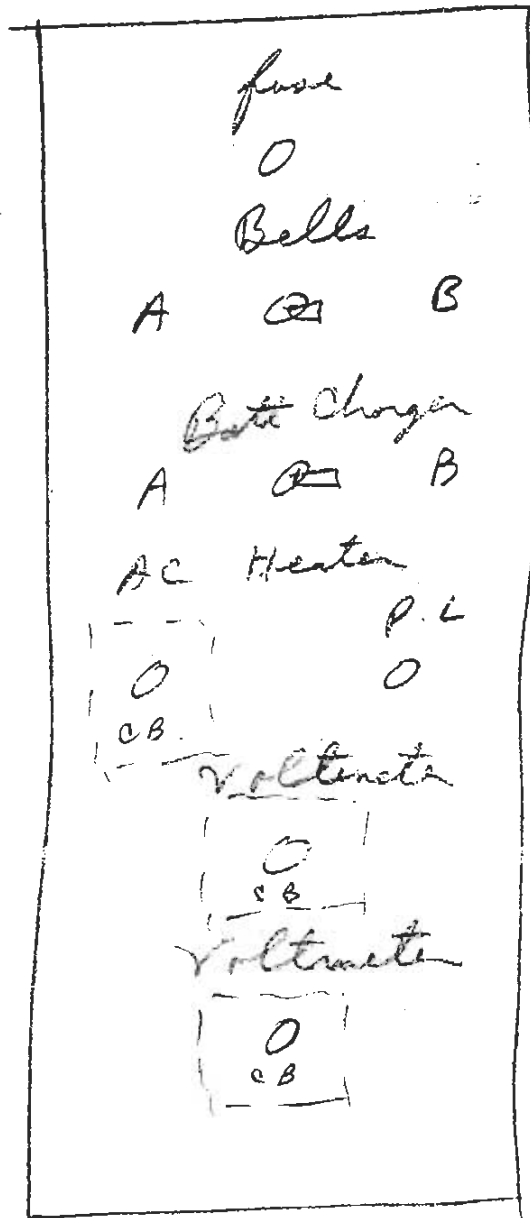 fuse
Bells
A B
Batt Charger
A B
AC Heater
P.L
CB.
Voltmeter
CB
Voltmeter
CB